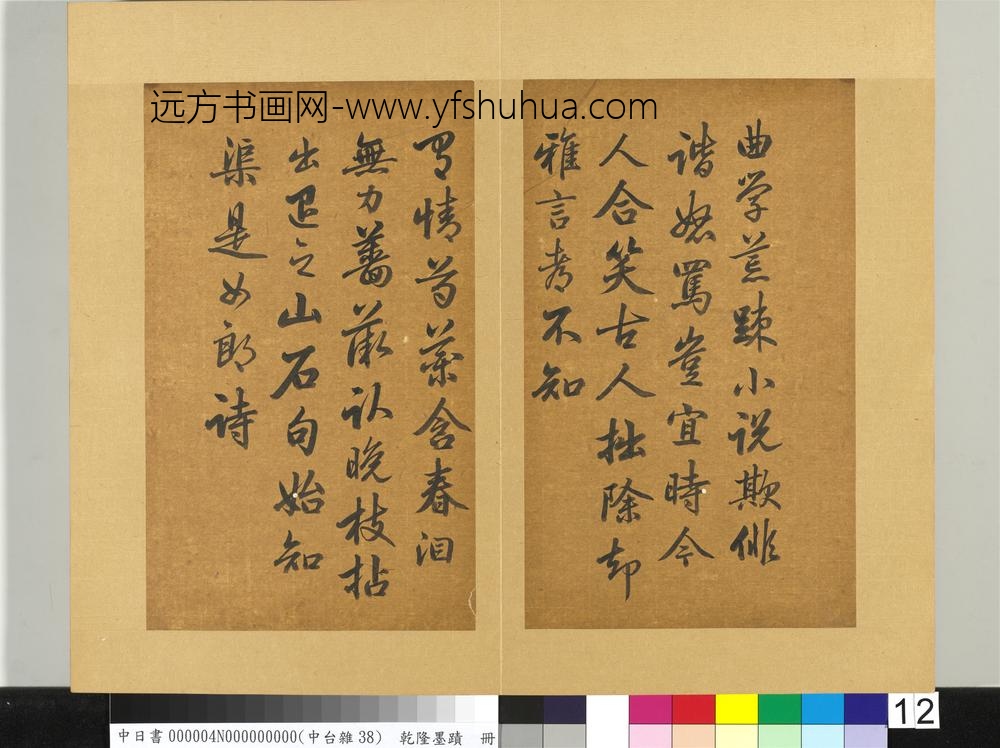 远方书画网-www.yfshuhua.com
曲学荒踈小說欺俳
諧怒罵豈宜時今
人合笑古人拙除却
雅言都不知
有情芍藥含春泪
無力薔薇臥晚枝拈
出退之山石句始知
渠是女郎詩
中日書 000004N000000000(中台雜 38) 乾隆墨蹟 冊
12